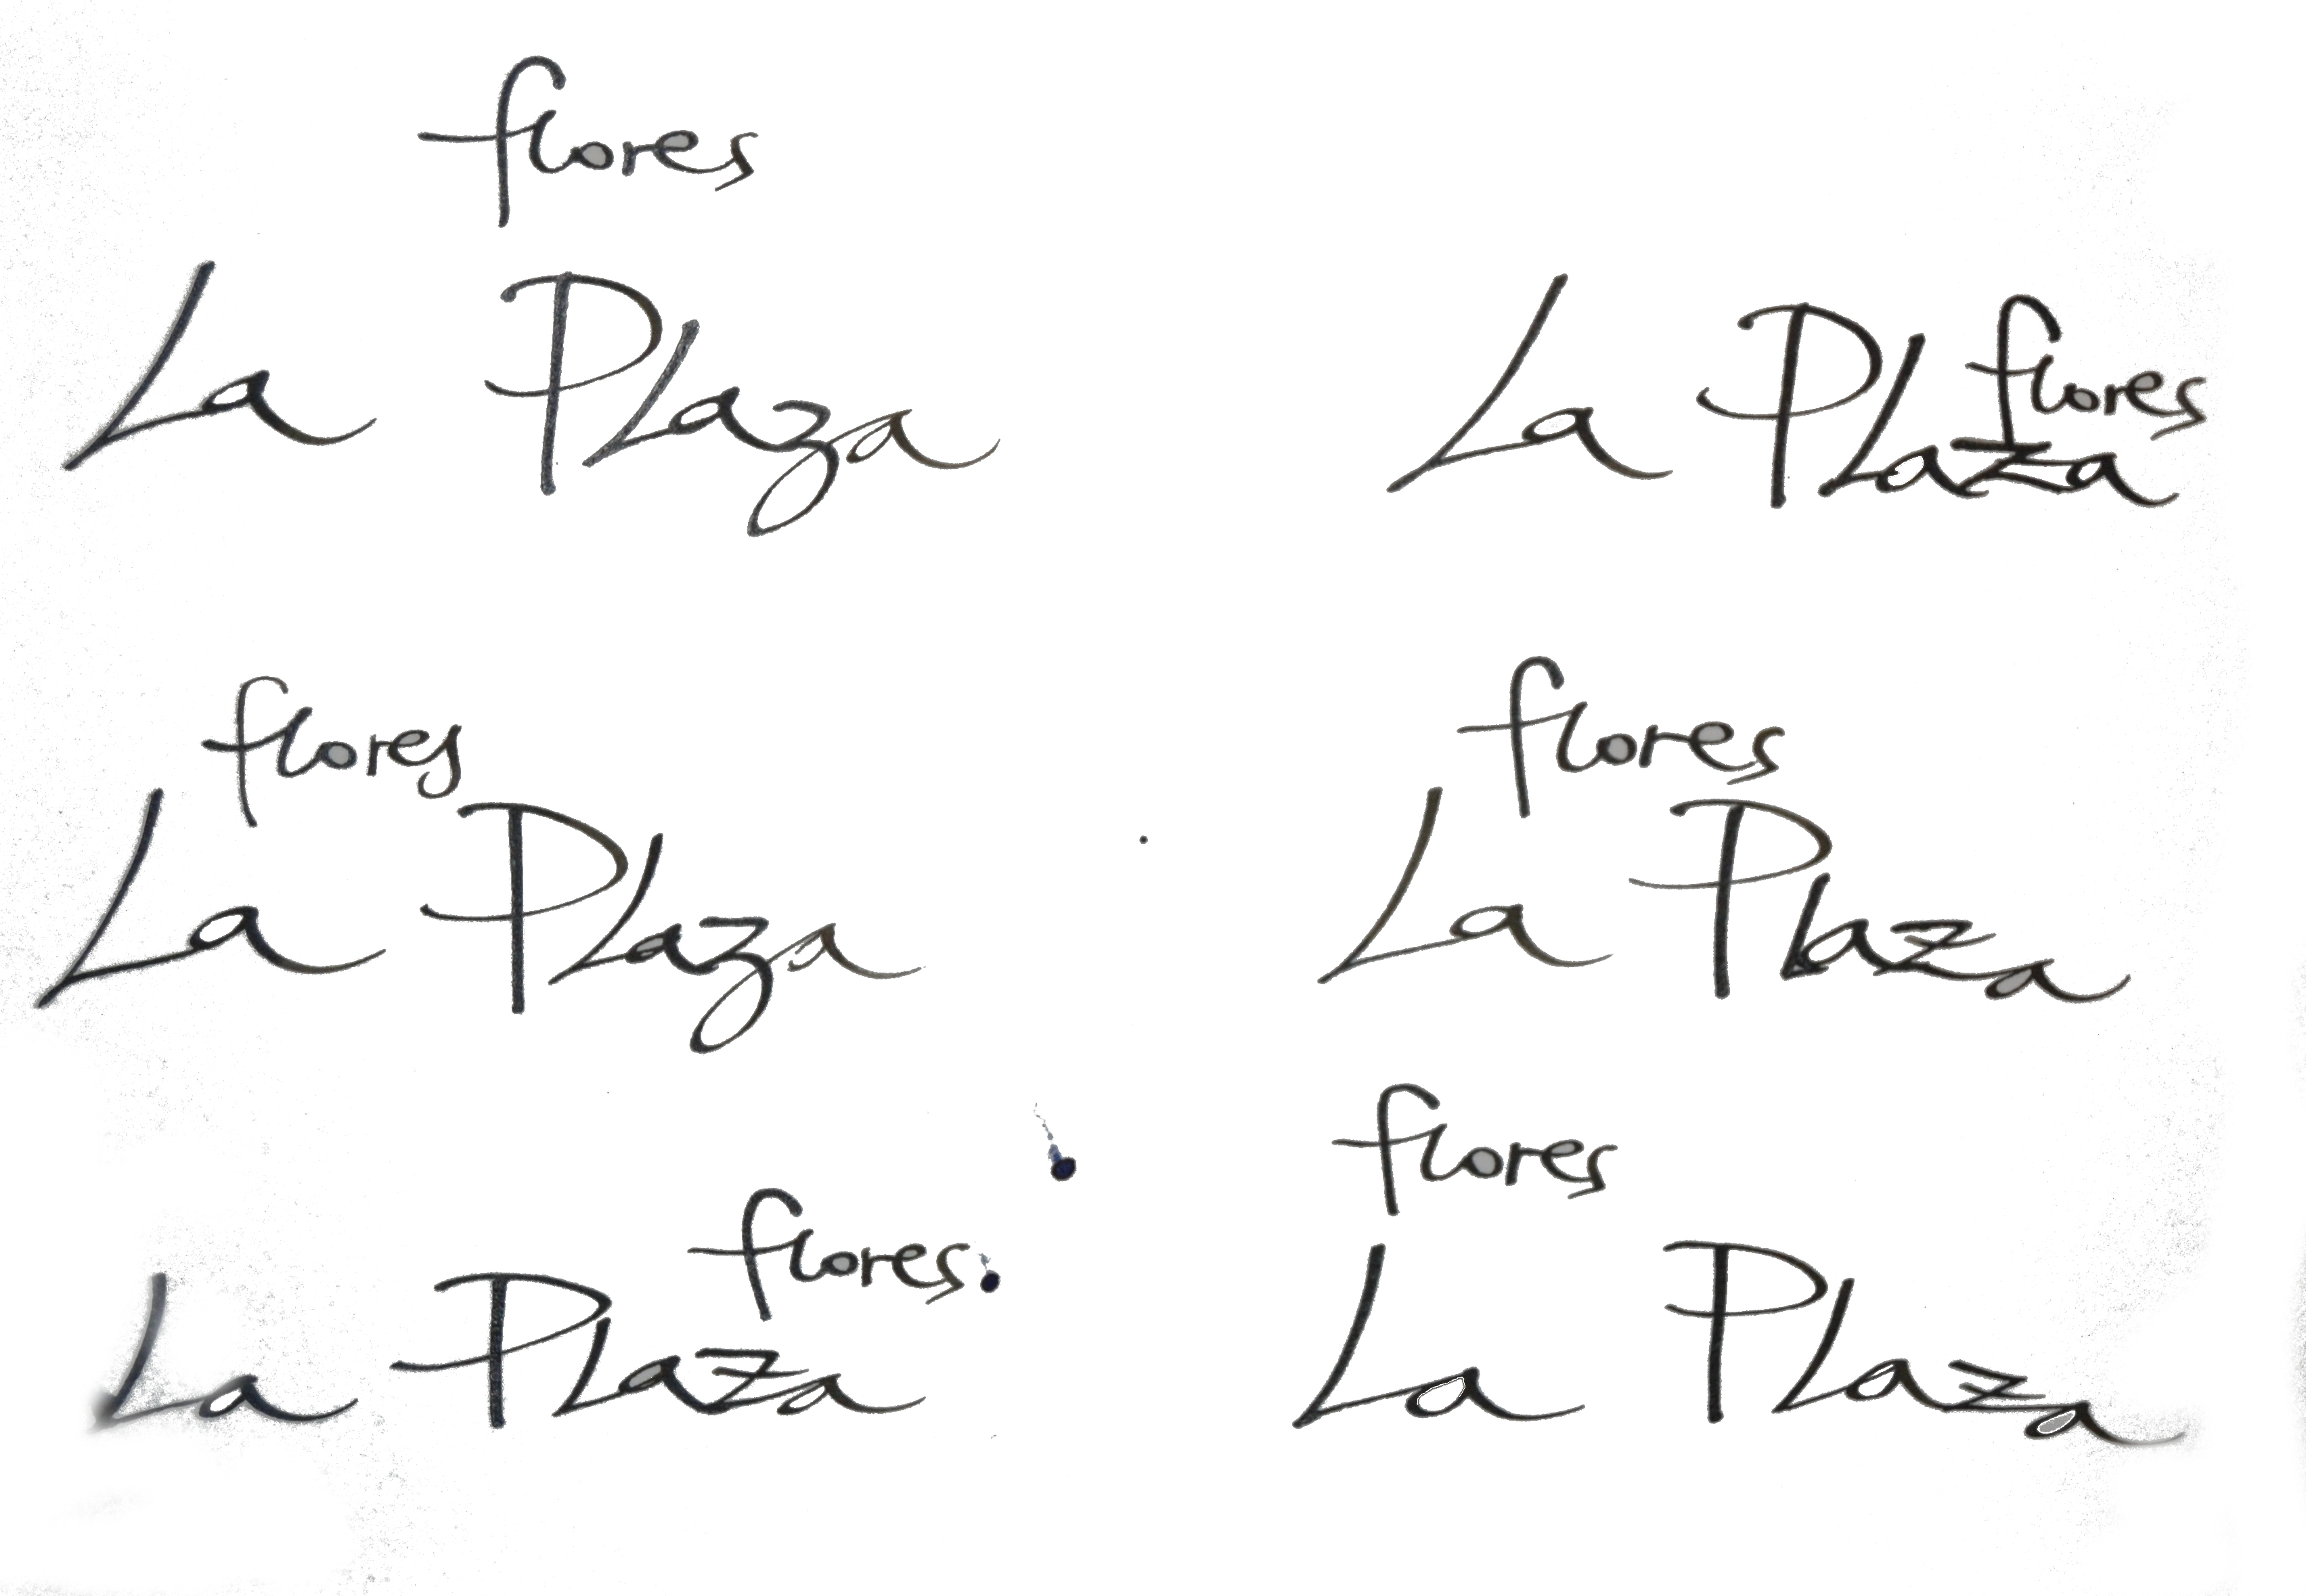 flores
La PLaza
flores
La PLaza
flores
La PLaza
flores
La PLaza
flores
La PLaza
flores
La PLaza